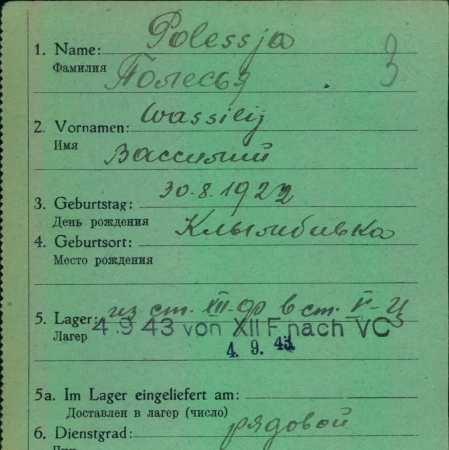 Polessja
1. Name:
3
Фамилия
Полесья
Wassilij
2. Vornamen:
Имя
Вассилий
30.8.1922
3. Geburtstag:
День рождения
4. Geburtsort:
Место рождения
из ст. XII-ф в ст. V-ц
5. Lager:
Лагер
4 9 43 von XII F nach VC
4. 9. 43
5a. Im Lager eingeliefert am:
Доставлен в лагер (число)
рядовой
6. Dienstgrad: